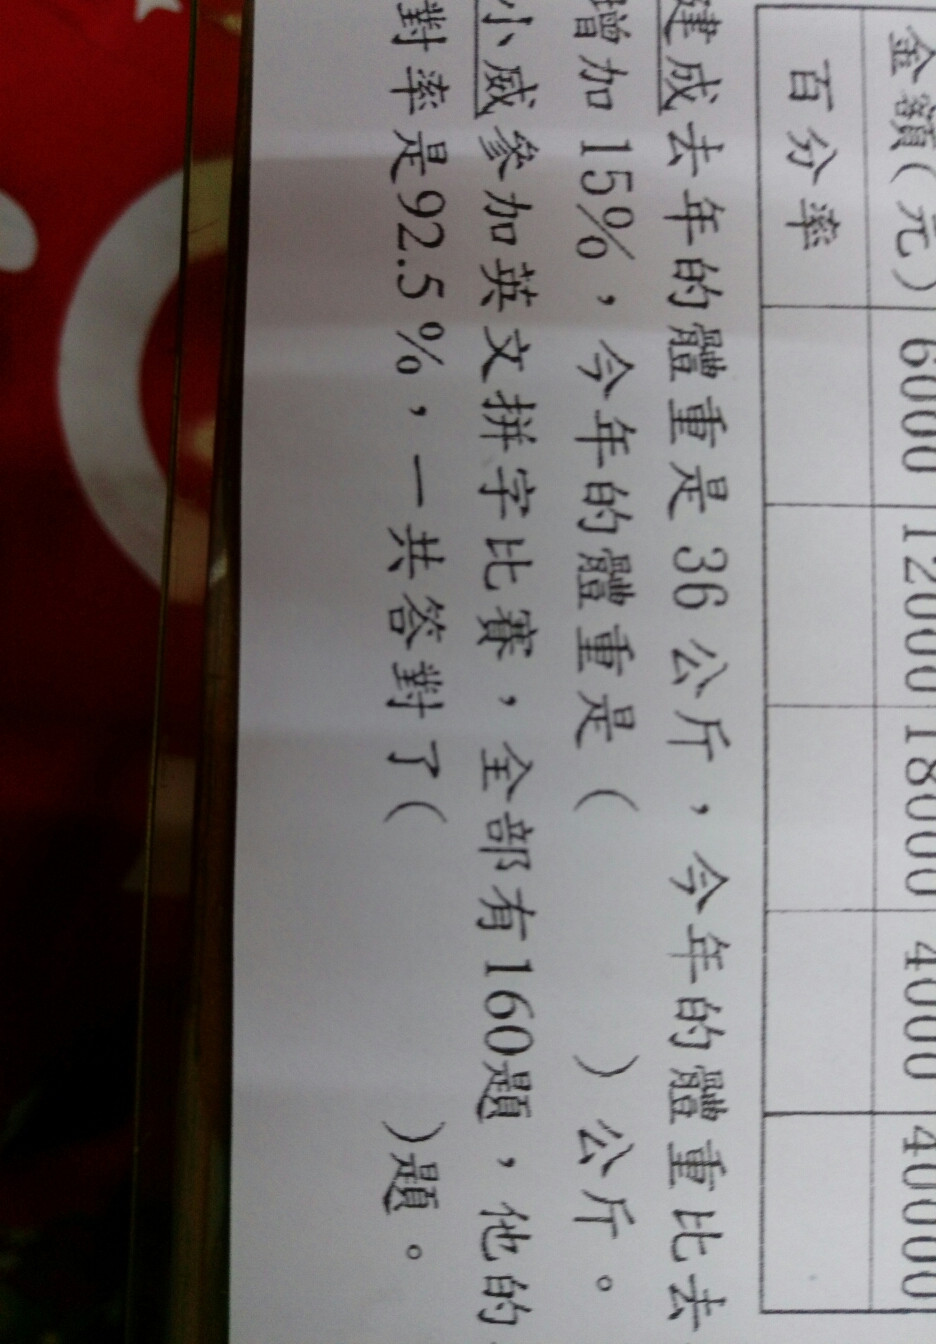 金額(元) 6000 12000 18000 4000 40000
百分率
建成去年的體重是36公斤，今年的體重比去
增加15%，今年的體重是( )公斤。
小威參加英文拼字比賽，全部有160題，他的
對率是92.5%，一共答對了( )題。